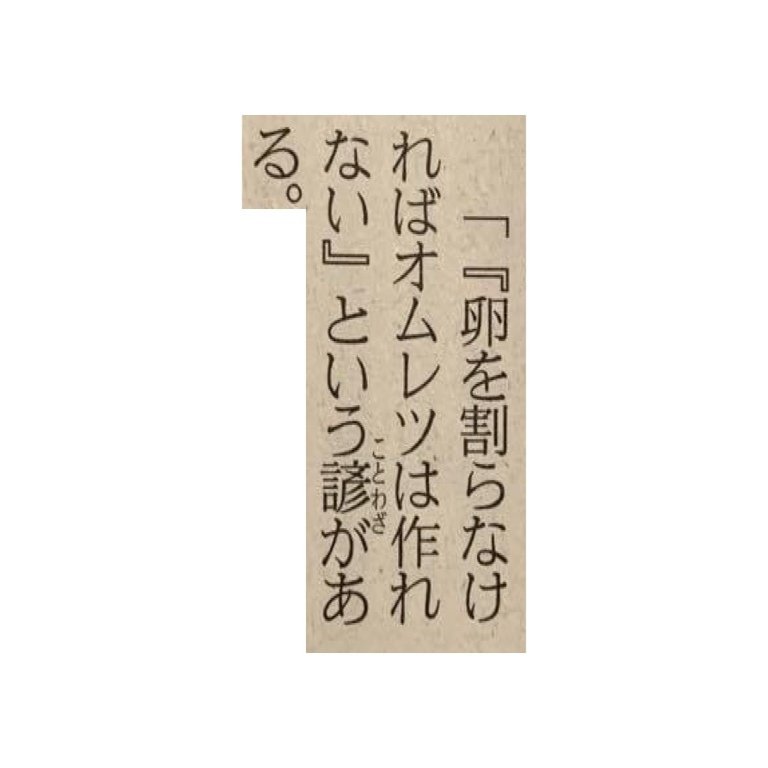 「『卵を割らなけ
ればオムレツは作れ
ない』という諺があ
ことわざ
る。